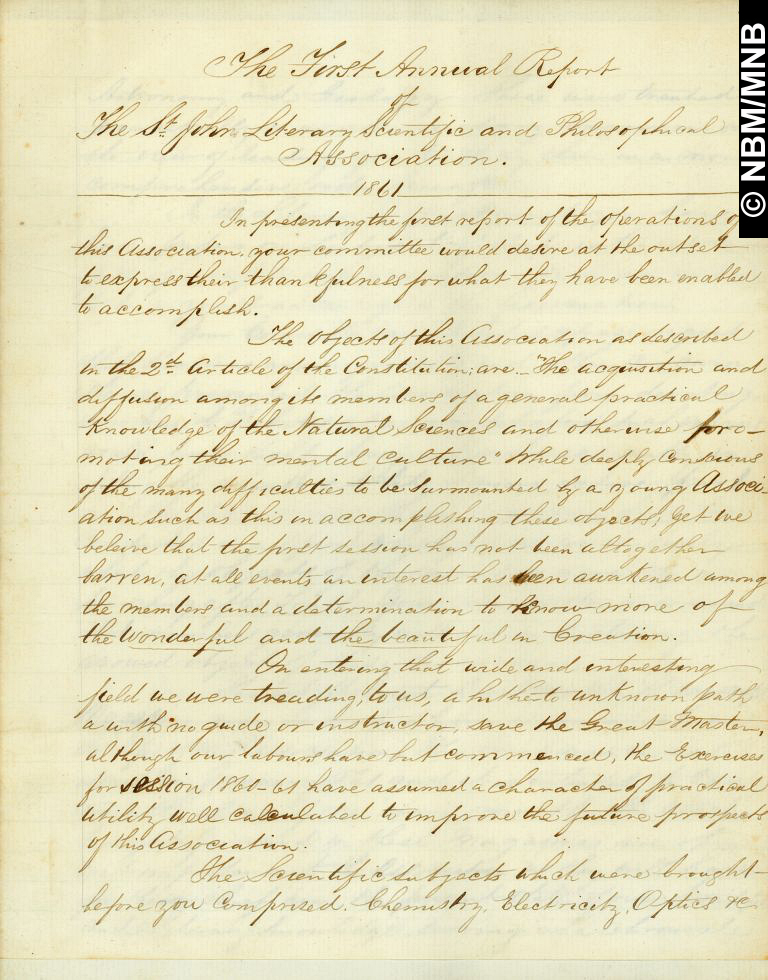 The First Annual Report
of
The St John Literary Scientific and Philosophical
Association.
1861
In presenting the first report of the operations of
this Association, your committee would desire at the outset
to express their thankfulness for what they have been enabled
to accomplish.
The Objects of this Association as described
in the 2nd Article of the Constitution; are – "The acquisition and
diffusion among its members of a general practical
Knowledge of the Natural Sciences and otherwise pro-
moting their mental culture" While deeply conscious
of the many difficulties to be surmounted by a young Associ-
ation such as this in accomplishing these objects; yet we
beleive that the first session has not been altogether
barren, at all events an interest has been awakened among
the members and a determination to know more of
the wonderful and the beautiful in Creation.
On entering that wide and interesting
field we were treading, to us, a hitherto unknown path
a with no guide or instructor, save the Great Master,
although our labours have but commenced, the Exercises
for session 1860-61 have assumed a character of practical
utility well calculated to improve the future prospects
of this Association.
The Scientific subjects which were brought
before you comprised. Chemistry, Electricity, Optics &c
© NBM/MNB